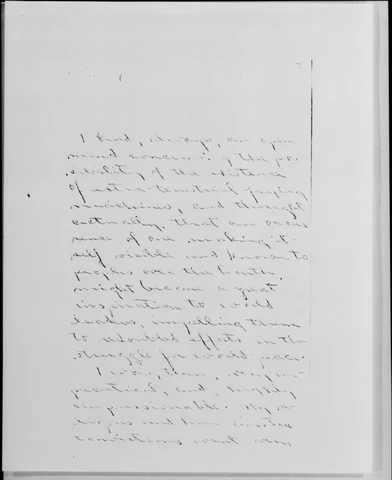 I had, always, an open
mind concerning the pos
sibility of the existence
of extra-terrestrial flying
machines, and thought
actually, that an occur
rence of one making it-
self visible and known to
peoples over the Earth,
might become a great
inspiration to world
leaders, impelling them
to redoubled efforts in the
struggle for world peace.
I was, then, very im-
practical, and, highly
impressionable. My
and
convictions went very